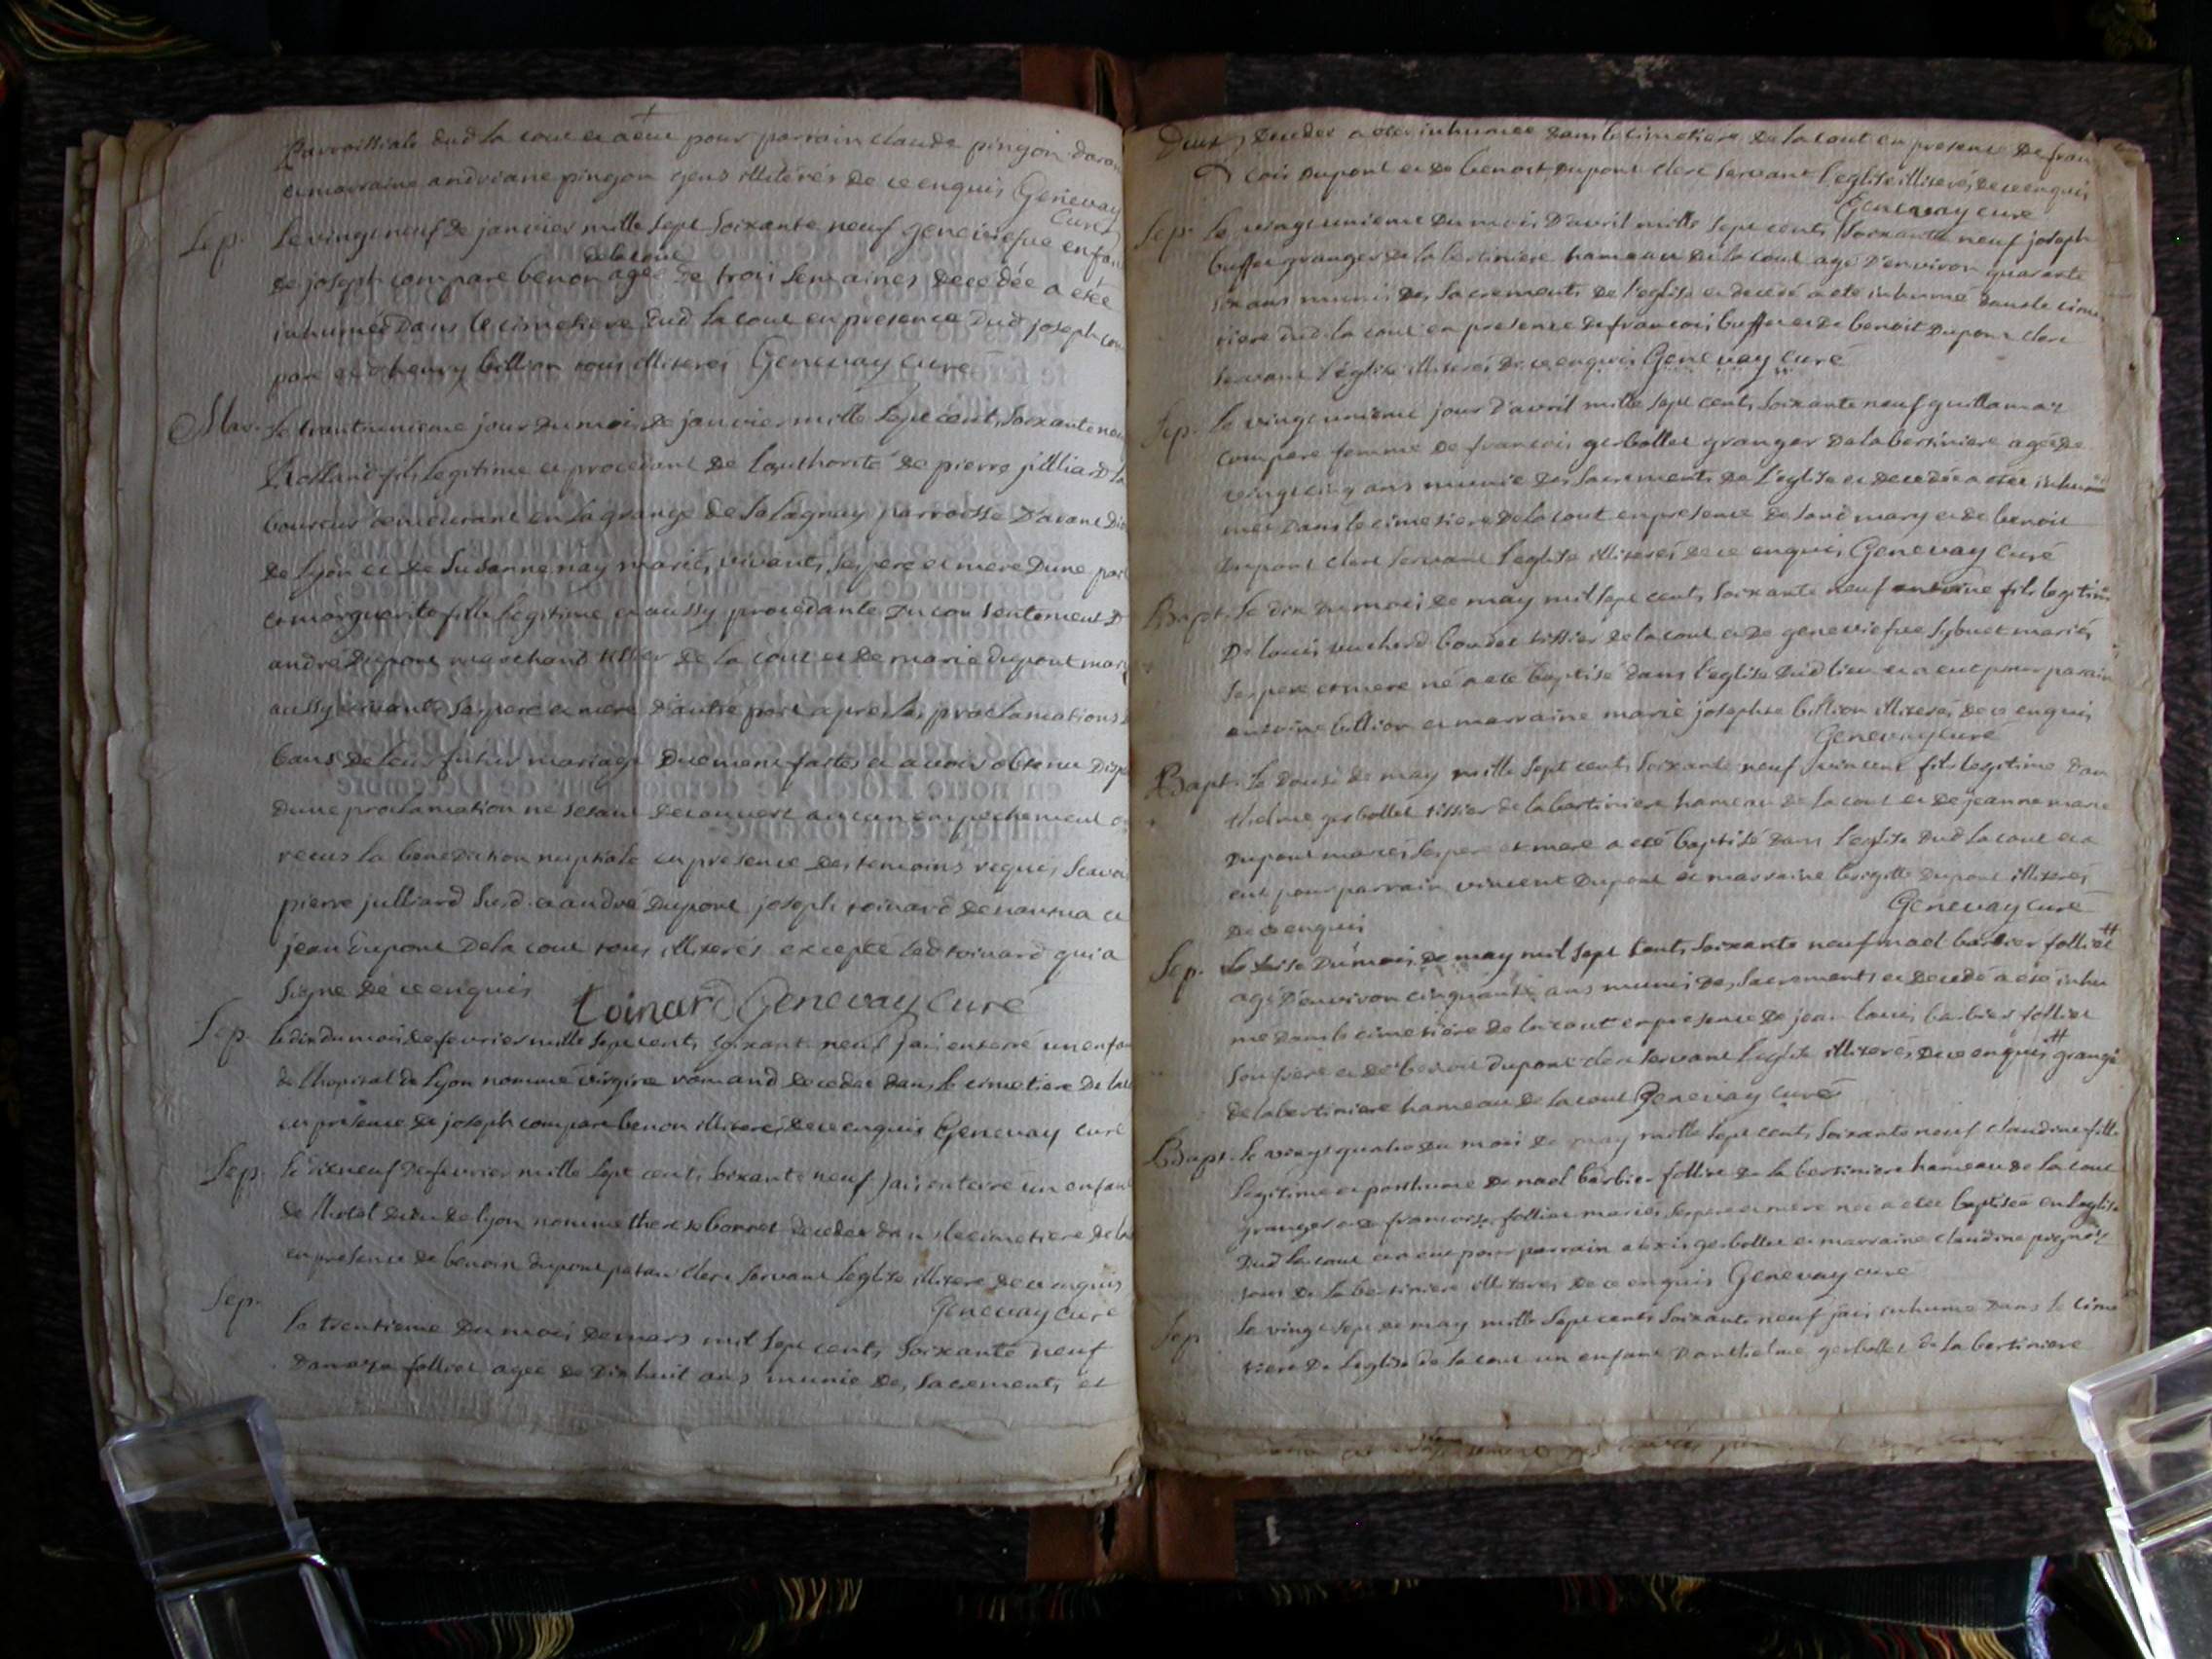 Parroissiale dud la cout et a eut pour parrain claude pingon
et marraine andriane pingon gens illiterés de ce enquis Genevay
curé
Sep. Le vingt neuf de janvier mille sept soixante neuf geneviefve enfan
de la cout
de joseph compare benon agée de troit semaines decedée a etéé
inhumée dans le cimetiere dud la cout en presence dud joseph com
pare et d'henry billion tous illiteres Genevay curé
Mar. Le trantunieme jour du mois de janvier mille sept cents soixante neu
Rolland fils legitime et procedant de l'authorité de pierre julliard la
boureur demeurant en la grange de parroisse
de Lyon et de Susanne nay mariés vivants ses pere et mere d'une part
et marguerite fille legitime et aussy procedante du consentement d
andré dupont marchand tissier de la cout et de marie dupont mar
aussy vivants ses pere et mere d'autre part apres les proclamations
bans de leur futur mariage duement faites et avoir obtenu disp
d'une proclamation ne s'etant decouvert aucun empechement
recus la benediction nuptiale en presence des temoins requis scavoi
pierre julliard sud. et andré dupont joseph toinard de nantua et
jean dupont de la cout tous illiterés excepté led toinard qui a
signé de ce enquis Toinard Genevay curé
Sep. le dix du mois de fevrier mille sept cents soixante neuf j'ai enterré un enfan
de l'hopital de Lyon nommé virgine romand decedee dans le cimetiere de la
en presence de joseph compare benon illiteré de ce enquis Genevay curé
Sep. Le dixneuf de fevrier mille sept cents soixante neuf j'ai enterré un enfan
de l'hotel dieu de lyon nommé therese bonnet decedee dans le cimetiere de la
en presence de benoit dupont clerc servant l'eglise illiteré de ce enquis
Genevay curé
Sep. Le trentieme du mois de mars mil sept cents soixante neuf
follict agée de dix huit ans munie des sacements et
Deux
decedée a etéé inhumée dans le cimetiere de la cout en presence de fran
cois dupont et de benoit dupont clerc servant l'eglise illiterés de ce enquis
Genevay curé
Sep. Le vingt unieme du mois d'avril mille sept cents soixante neuf joseph
buffet granger de la bertiniere hameau de la cout agé d'environ quarante
six ans muni des sacrements de l'eglise et decedé a eté inhumé dans le cime
tiere dud. la cout en presence de francois buffet et de benoit dupont clerc
servant l'église illiterés de ce enquis Genevay curé
Sep. Le vingt unieme jour d'avril mille sept cents soixante neuf
compare femme de francois gerbollet granger de la bertiniere agée de
vingt cinq ans munie des sacrements de l'eglise et decedée a etéé inhu
mée dans le cimetiere de la cout en presence de son d mary et de benoit
dupont clerc servant l'eglise illiterés de ce enquis Genevay curé
Bapt. Le dix du mois de may mil sept cents soixante neuf antoine fils legitim
De louis boudet tissier de la cout et de geneviefve sybuet mariés
ses pere et mere né a eté baptisé dans l'eglise dud lieu et a eut pour parain
antoine billion et marraine marie josephte billion illiterés de ce enquis
Genevay curé
Bapt. Le douse de may mille sept cents soixante neuf vincent fils legitime d'an
thelme gerbollet tissier de la bertiniere hameau de la cout et de jeanne marie
Dupont mariés ses pere et mere a eté baptisé dans l'eglise dud la cout et a
eut pour parrain vincent dupont et marraine brigitte dupont illiterés
de ce enquis Genevay curé
Sep. Le du mois de may mil sept cents soixante neuf nael barbier folliet #
agé d'environ cinquante ans muni des sacrements et decedé a eté inhu
mé dans le cimetiere de la cout en presence de jean louis barbier folliet
son frere et de benoit dupont clerc servant l'eglise illiterés de ce enquis # grange
de la bertiniere hameau de la cout Genevay curé
Bapt. Le vingt quatre du mois de may mille sept cents soixante neuf claudine fille
legitime et posthume de nael barbier folliet de la bertiniere hameau de la cout
granger et de francoise folliet mariés ses pere et mere née a etéé baptisée en l'eglise
Dud la cout et a eut pour parrain alexis gerbollet et marraine claudine
tous de la bertiniere illiterés de ce enquis Genevay curé
Sep Le vingt sept de may mille sept cents soixante neuf j'ai inhumé dans le cime
tiere de l'eglise de la cout un enfant d'anthelme gerbollet de la bertiniere